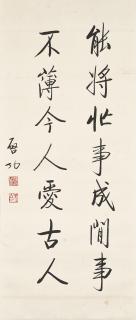 能将忙事成闲事
不薄今人愛古人
启功